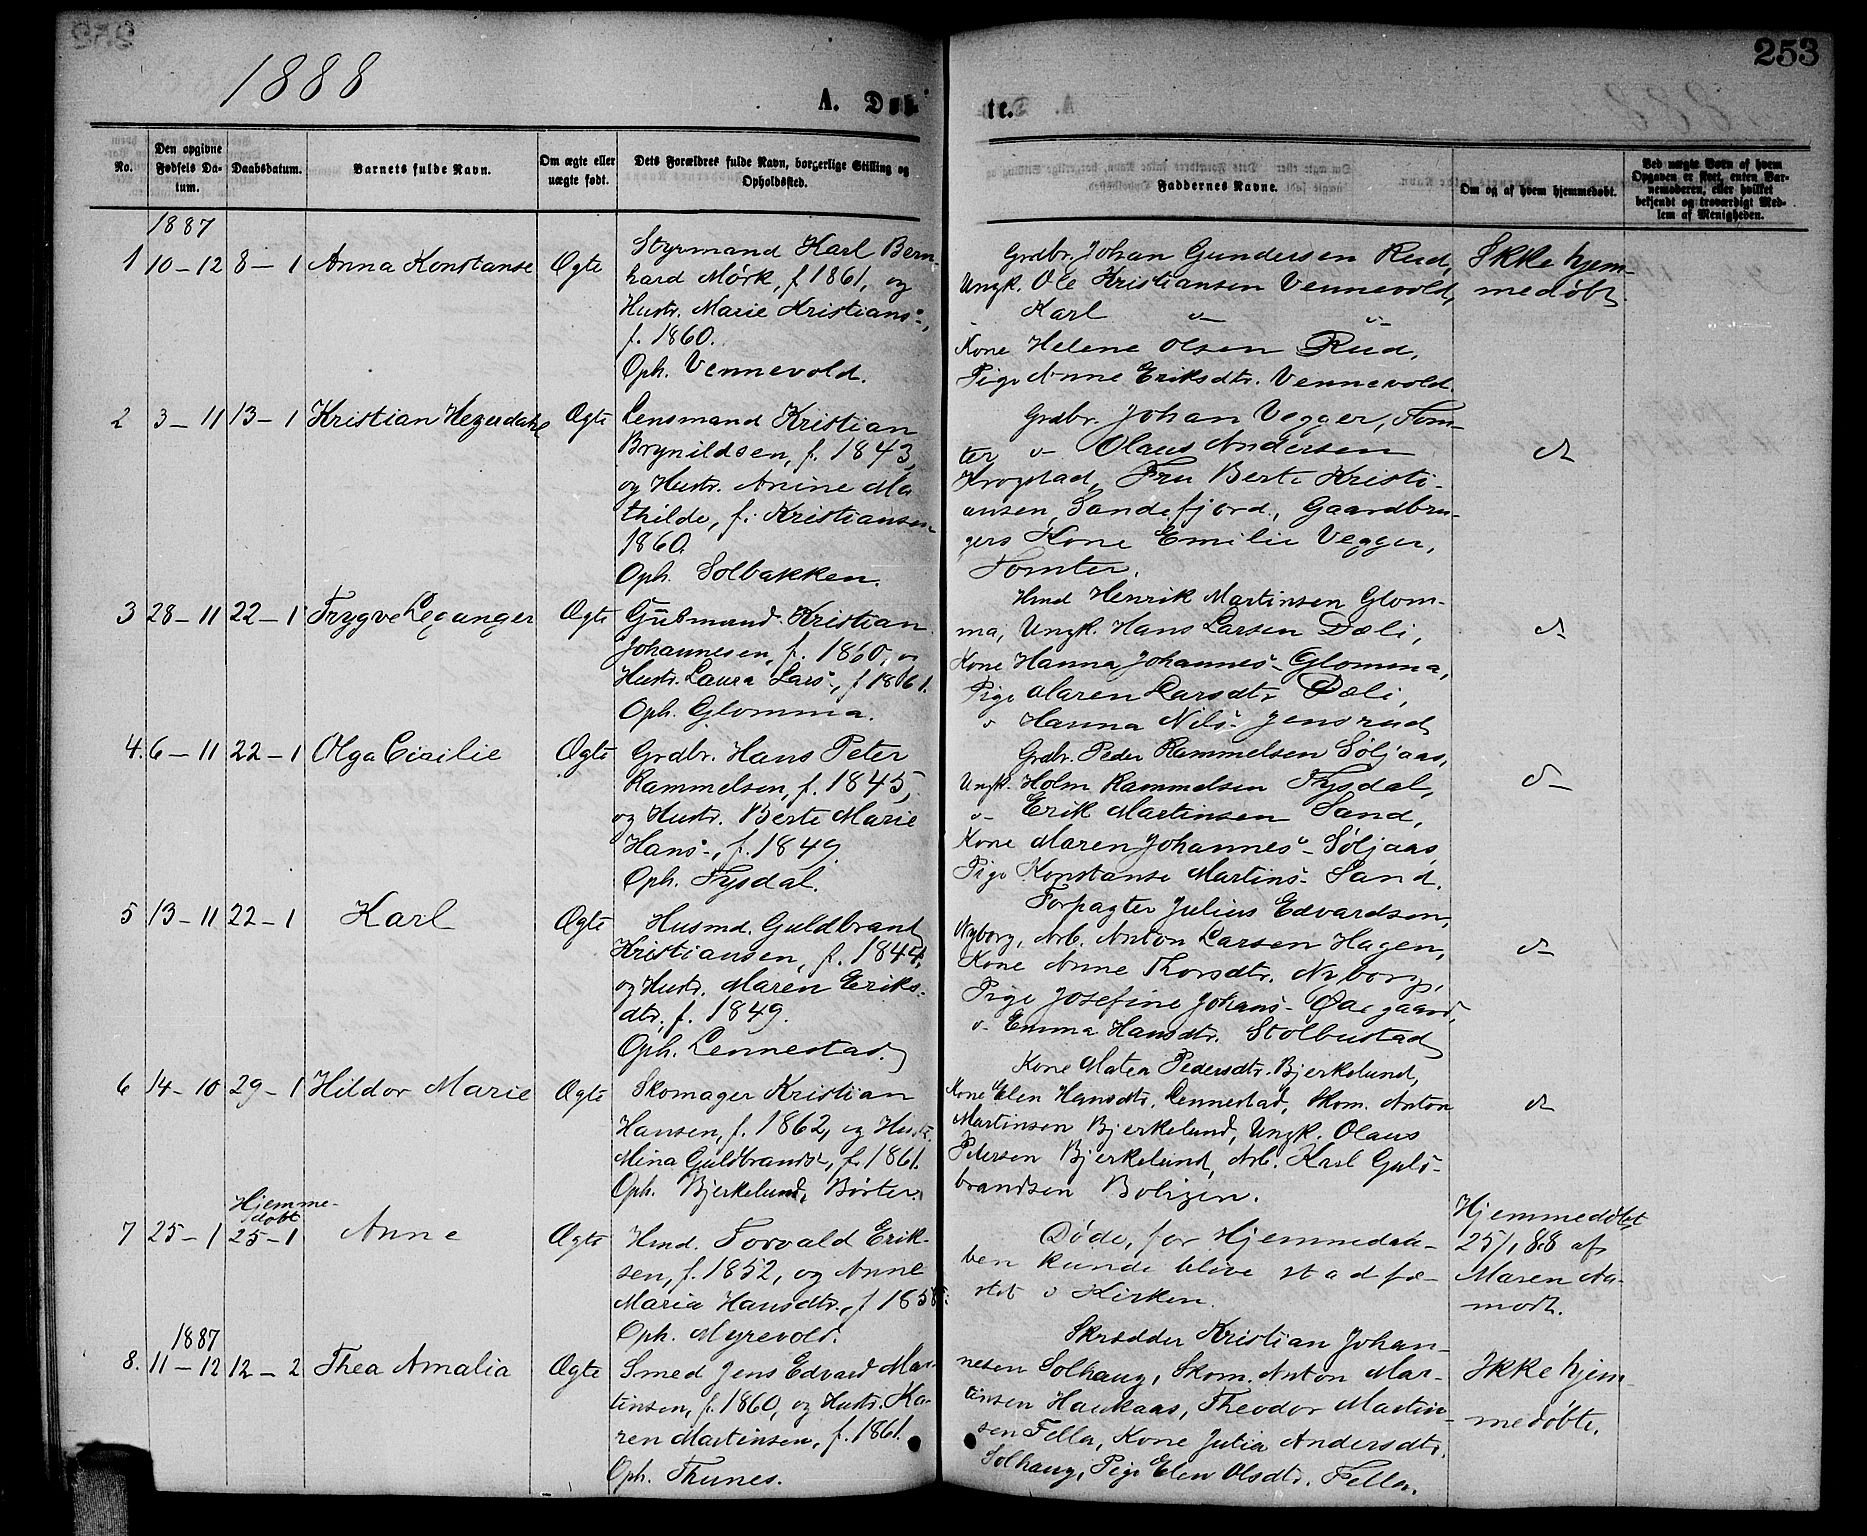 1888
253
A. Døbte.
No.
Den opgivne Fødsels Datum.
Daabsdatum.
Barnets fulde Navn.
Om ægte eller uægte født.
Dets Forældres fulde Navn, borgerlige Stilling og Opholdssted.
Faddernes Navne.
Om og af hvem hjemmedøbt.
Ved uægte Børn af hvem Opgaven er sket, enten Barnemoderen, eller hvilket bekjendt og troværdigt Medlem af Menigheden.
1887
1 10-12 8-1 Anna Konstanse Ægte
Styrmand Karl Bern-
hard Mørk, f 1861, og
Hustr. Marie Kristians-,
f. 1860.
Oph. Vennevold.
Grdbr. Johan Gundersen Rud,
Ungk. Ole Kristiansen Vennevold,
Karl
Kone Helene Olsen Rud,
Pige Anne Eriksdtr. Vennevold
Ikke hjem-
medøbt.
2 3-11 13-1 Kristian Hegerdahl Ægte
Lensmand Kristian
Brynildsen, f. 1843,
og Hustr. Anine Ma
thilde, f. Kristiansen
1860.
Oph. Solbakken.
Grdbr. Johan Vegger, Tom-
ter Olaus Andersen
Krogstad, Fru Berte Kristi-
ansen, Sandefjord, Gaardbru-
gers Kone Emilie Vegger,
Tomter.
3 28-11 22-1 Trygve Leganger Ægte
Gubmand Kristian
Johannesen, f. 1860, og
Hustr. Laura Lars-, f 1861.
Oph. Glomma.
Hmd Henrik Martinsen Glom-
ma, Ungk. Hans Larsen Dæli,
Kone Hanna Johannes- Glomma,
Pige Maren Larsdtr. Dæli,
Hanna Nils- Jensrud
4. 6-11 22-1 Olga Cicilie Ægte
Grdbr. Hans Peter
Rammelsen, f. 1845,
og Hustr. Berte Marie
Hans-, f. 1849.
Oph. Fysdal.
Grdbr. Peder Rammelsen Søljaas,
Ungk. Holm Rammelsen Fysdal,
Erik Martinsen Sand,
Kone Maren Johannes- Søljaas,
Pige Konstanse Martins- Sand.
5 13-11 22-1 Karl Ægte
Husmd. Guldbrand
Kristiansen, f. 1844,
og Hustr. Maren Eriks-
dtr, f. 1849.
Oph. Lennestad
Forpagter Julius Edvardsen,
Nyborg, Arb. Anton Larsen Hagen,
Kone Anne Thorsdtr. Nyborg,
Pige Josefine Johans-
Emma Hansdtr. Stolbustad
6 14-10 29-1 Hildor Marie Ægte
Skomager Kristian
Hansen, f. 1862, og Hustr.
Mina Guldbrands-, f. 1861.
Oph. Bjerkelund, Børter.
Kone Matea Pedersdtr. Bjerkelund,
Kone Elen Hansdtr. Lennestad, Skom. Anton
Martinsen Bjerkelund, Ungk. Olaus
Petersen Bjerkelund, Arb. Karl Guld-
brandsen Boligen.
Hjemme-
døbt
7 25-1 25-1 Anne Ægte
Hmd. Torvald Erik-
sen, f. 1852, og Anne
Maria Hansdtr., f 1858.
Oph. Myrevold.
Døde, før Hjemmedaa-
ben kunde blive stadfæ-
stet i Kirken.
Hjemmedøbt
25/1 88 af
Maren Aa-
modt.
1887
8. 11-12 12-2 Thea Amalia Ægte
Smed Jens Edvard Mar-
tinsen, f. 1860, og Hustr. Ka-
ren Martinsen, f. 1861.
Oph. Thunes.
Skrædder Kristian Johan-
nesen Solhaug, Skom. Anton Mar-
tinsen Haukaas, Theodor Martin-
sen Fella, Kone Julia Andersdtr.
Solhaug, Pige Elen Olsdtr. Fella.
Ikke hjem-
medøbte.